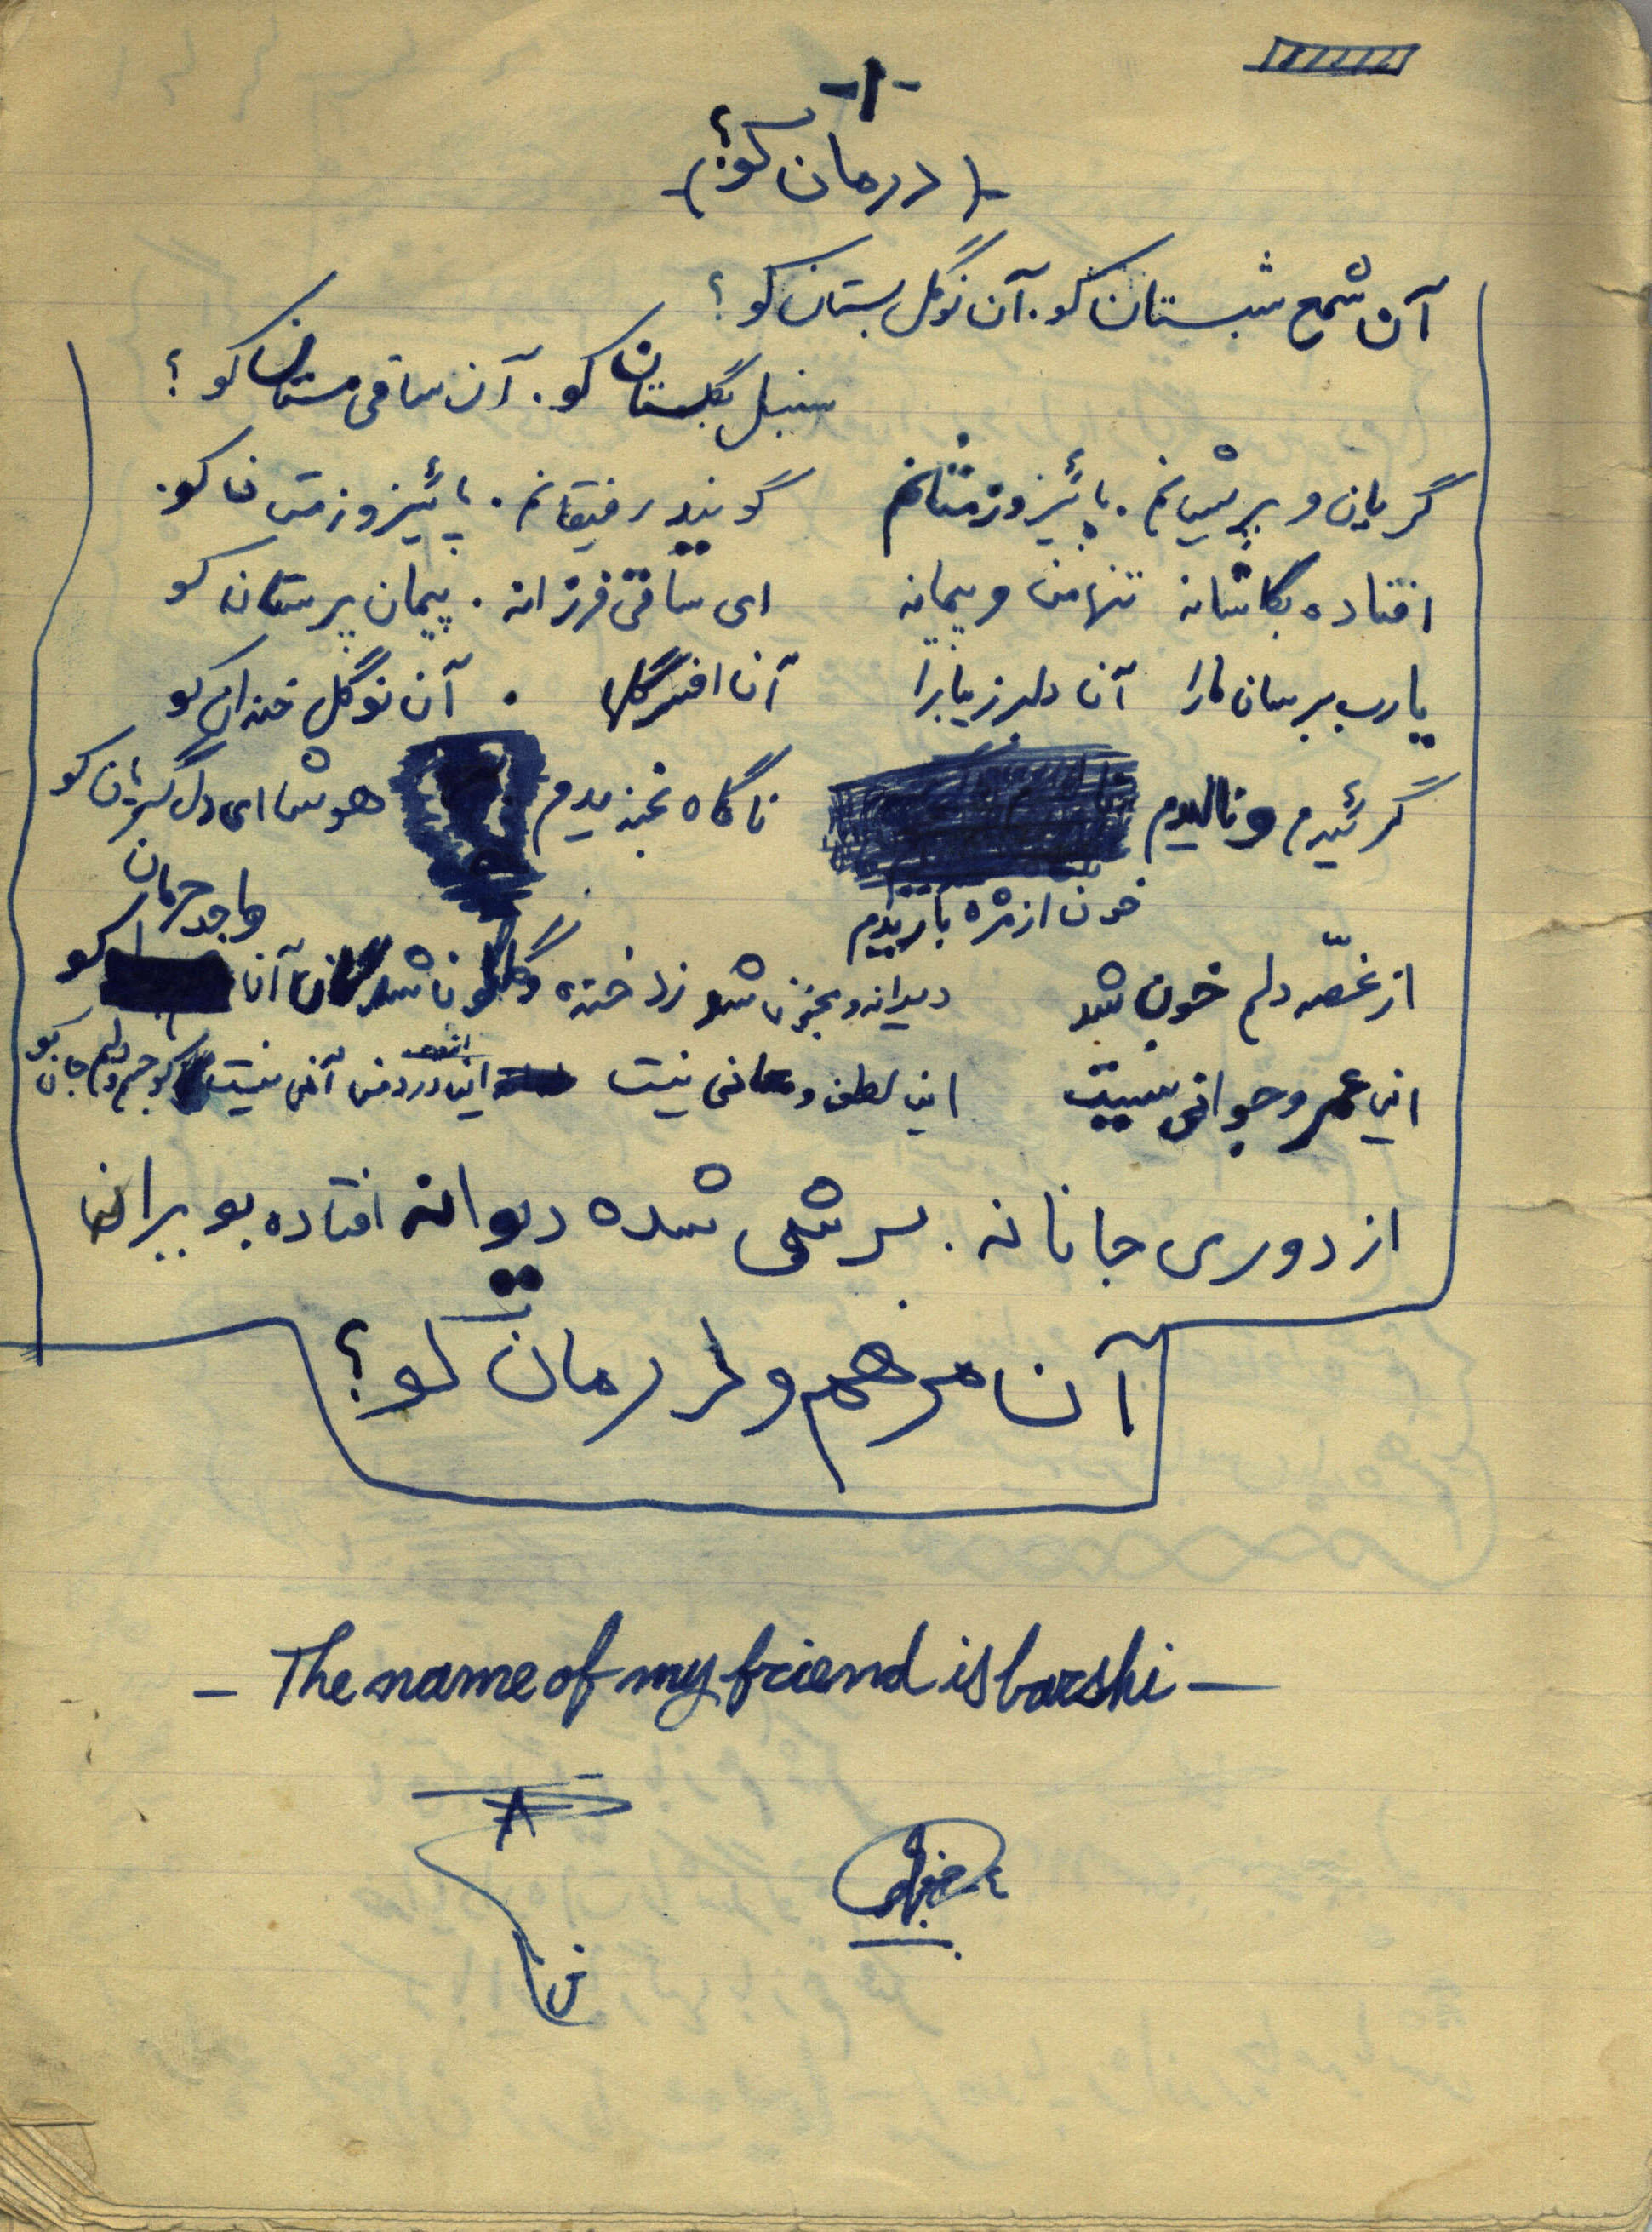 -۱-
-(درمان کو؟)-
آن شمع شبستان کو. آن نوگل بستان کو؟
سنبل گلستان کو. آن ساقی مستان کو؟
گریان و پریشانم. پائیز و زمستانم گویند رفیقانم. پائیز و زمستان کو.
افتاده بکاشانه تنها من و پیمانه ای ساقی فرزانه. پیمان پرستانه کو
یا رب برسان ما را آن دلبر زیبا را آن افسر گلها. آن نوگل خندان کو
گرئیدم و نالیدم ناگاه بخندیدم هوش ای دل کو
خون از مژه باریدم
حرمان
از غصّه دلم خون شد دیوانه و مجنون شد زد خنده و گلگون شد آن کو
این عمر و جوانی نیست این لطف و معانی نیست این درد من آنی نیست کو جسم و دلم جان کو
از دوری جانانه. برشی شده دیوانه افتاده بویرانه
آن مرهم و درمان کو؟
- The name of my friend is barshi -